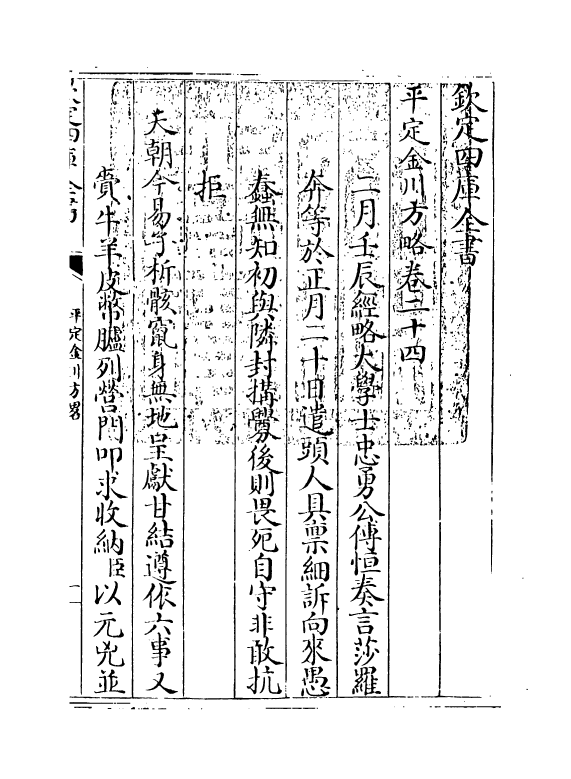 欽定四庫全書
平定金川方略卷二十四
二月壬辰經略大學士忠勇公傅恒奏言莎羅
奔等於正月二十日遣頭人具稟細訴向來愚
蠢無知初與隣封搆釁後則畏死自守非敢抗
拒
天朝今易子析骸竄身無地呈獻甘結遵依六事又
賫牛羊皮幣臚列營門叩求收納臣以元兇並
平定金川方畧